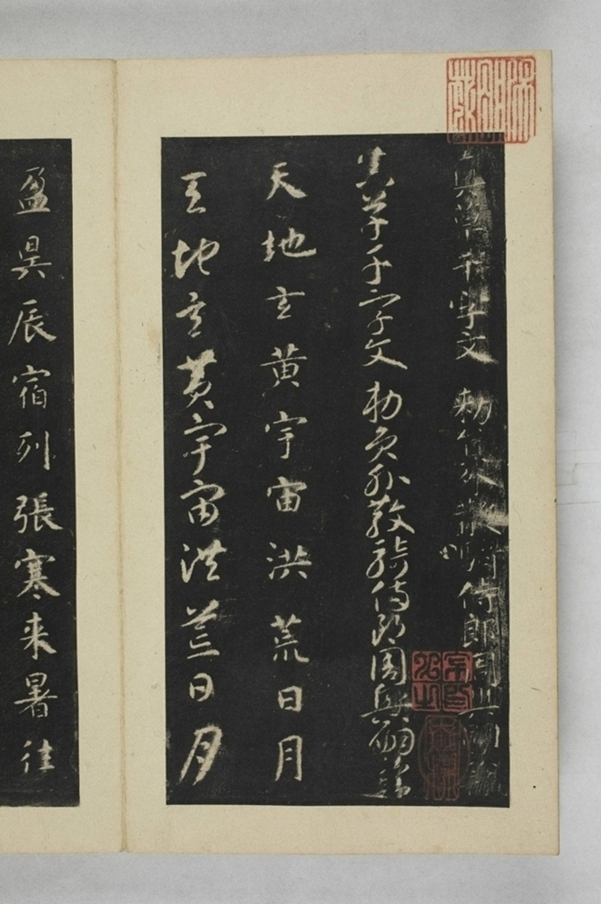 真草千字文 勑員外散騎侍郎周興嗣
真草千字文 勑員外散騎侍郎周興嗣次韻
天地玄黃宇宙洪荒日月
天地玄黃宇宙洪荒日月
盈昃辰宿列張寒来暑往